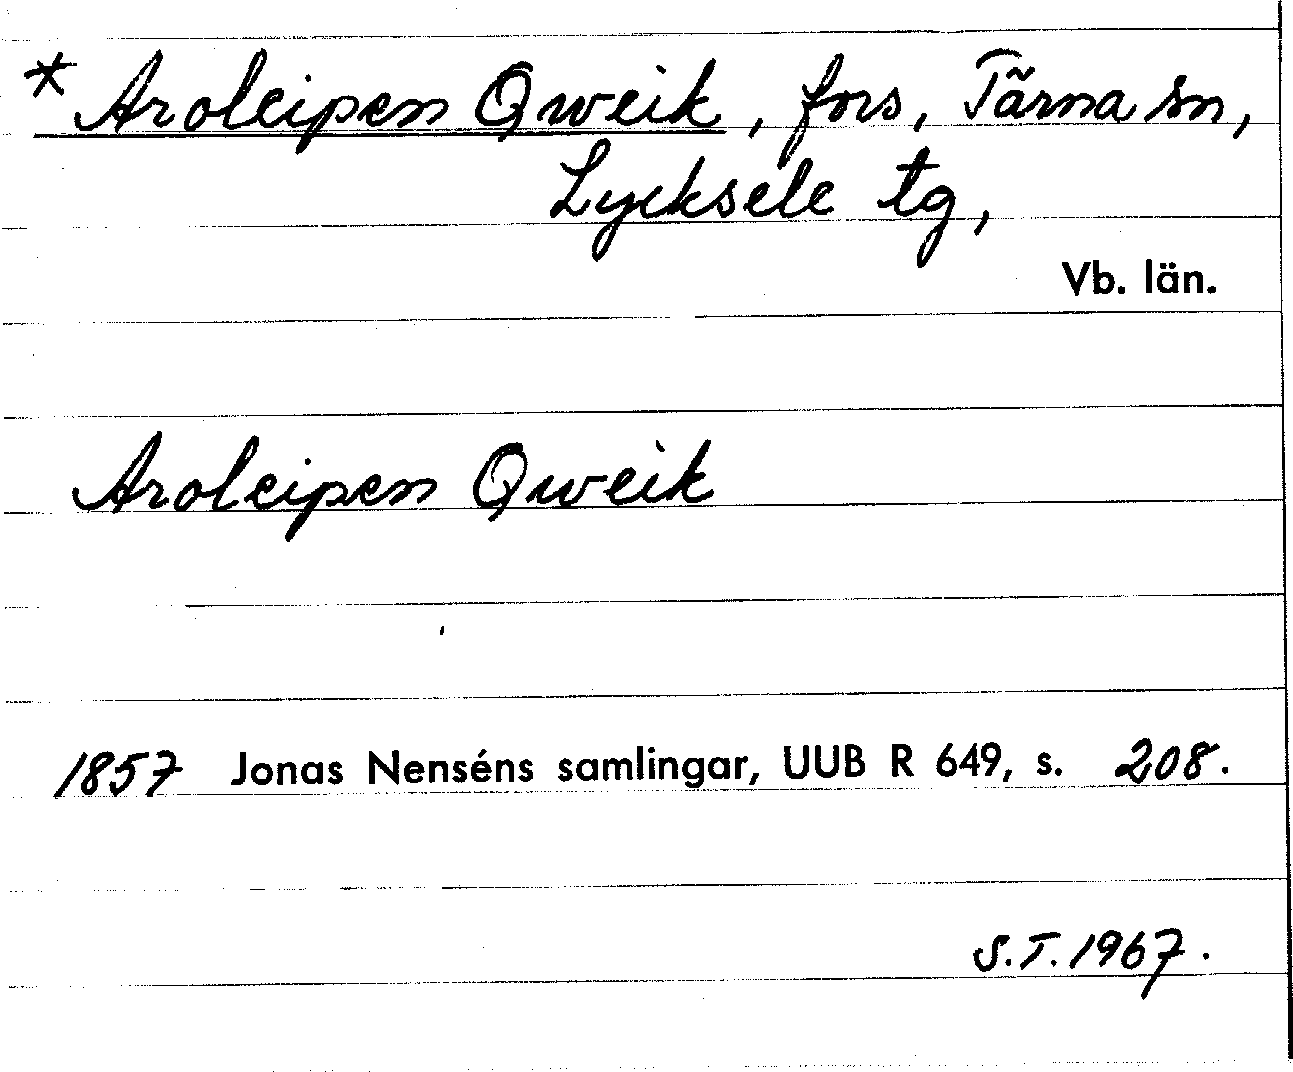 * Aroleipen Qweik, fors, Tärna sn,
Lycksele tg,
Vb. län.
Aroleipen Qweik
1857 Jonas Nenséns samlingar, UUB R 649, s. 208.
S.T. 1967.